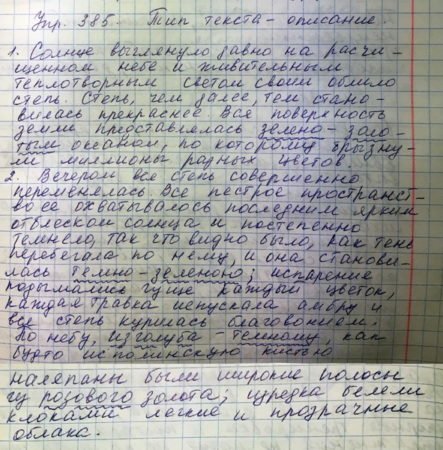 Упр. 385. Тип текста - описание.
1. Солнце выглянуло давно на расчи-
щенном небе и живительным
теплотворным светом своим облило
степь. Степь, чем далее, тем стано-
вилась прекраснее. Вся поверхность
земли представлялась зелено-золо-
тым океаном, по которому брызну-
ли миллионы разных цветов.
2. Вечером вся степь совершенно
переменялась. Все пестрое пространст-
во ее охватывалось последним ярким
отблеском солнца и постепенно
темнело, так что видно было, как тень
перебегала по нему, и она станови-
лась темно-зеленою; испарения
подымались гуще каждый цветок,
каждая травка испускала амбру и
вся степь курилась благовонием.
По небу, изголуба-темному, как
будто исполинскою кистью
наляпаны были широкие полосы
из розового золота; изредка белели
клоками легкие и прозрачные
облака.